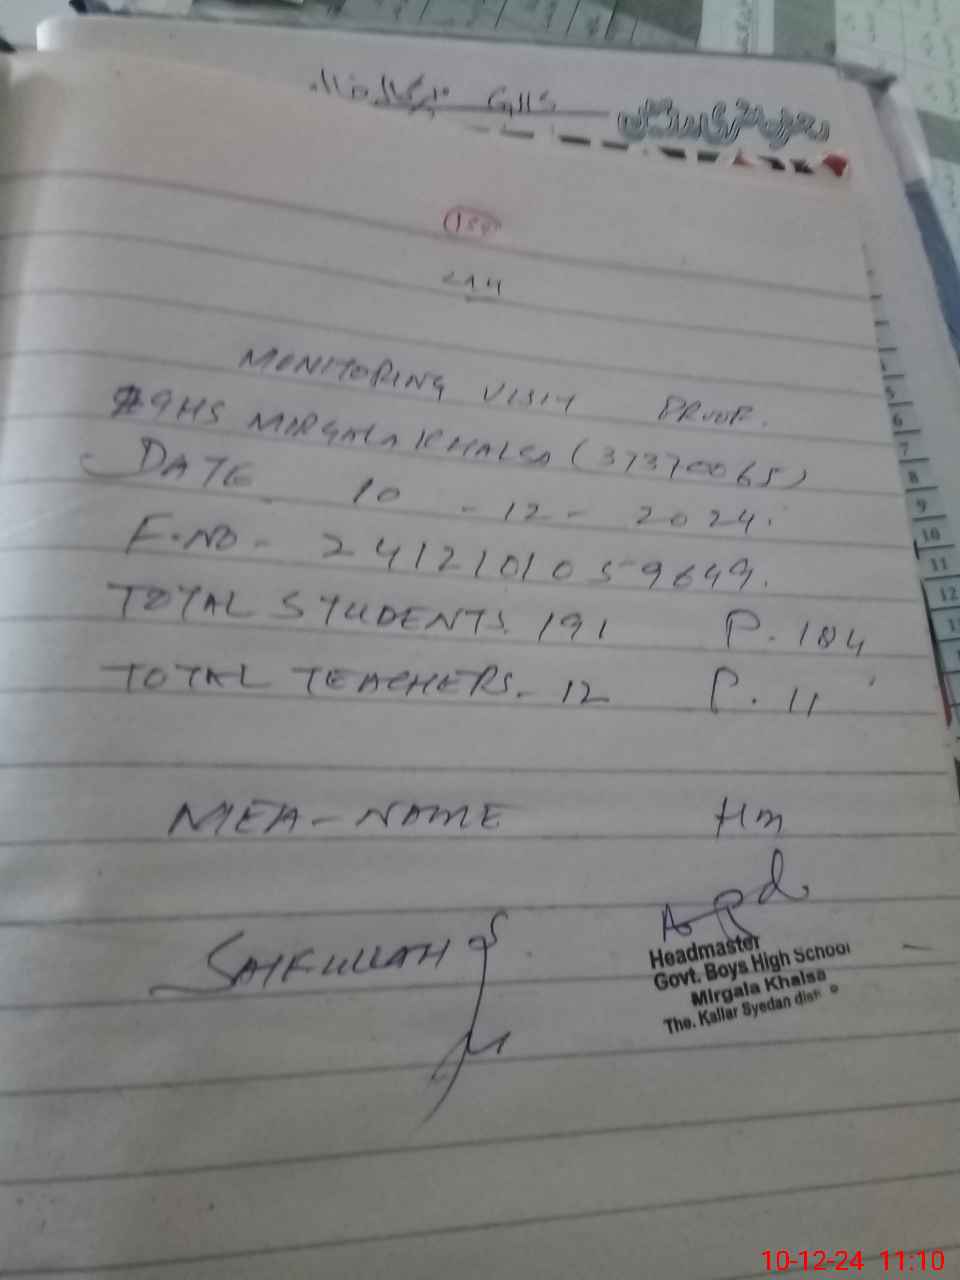 GHS
(155)
۷۸۶
MONITORING VISIT PROOF.
GHS MIRGALA KHALSA (37370065)
DATE 10 - 12 - 2024.
F.NO - 2412101059649.
TOTAL STUDENTS. 191 P. 184
TOTAL TEACHERS. 12 P. 11
MEA - NAME HM
SAIFULLAH
Headmaster
Govt. Boys High School
Mirgala Khalsa
The. Kallar Syedan
5
6
7
8
9
10
11
12
10-12-24 11:10